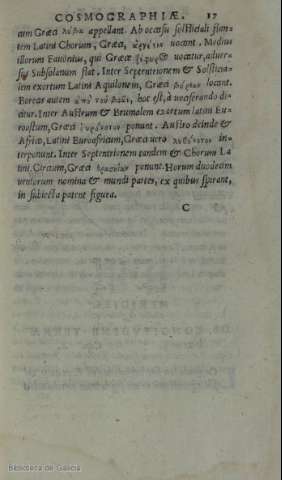 COSMOGRAPHIÆ. 17
cum Græci λίβα appellant. Ab occasu solstitiali flan-
tem Latini Chorum, Græci, ἀργέστω vocant. Medius
illorum Fauonius, qui Græce ζέφυρος vocatur, aduer-
sus Subsolanum flat. Inter Septentrionem & Solstitia-
lem exortum Latini Aquilonem, Græci βορέαν locant.
Boreas autem ἀπὸ τοῦ βοᾶν, hoc est, à vociferando di-
citur. Inter Austrum & Brumalem exortum latini Eu-
ronotum, Græci ponunt. Austro deinde &
Africo, Latini Euroafricum, Græci vero λιβόνοτον in-
terponunt. Inter Septentrionem tandem & Chorum La
tini. Circium, Græci θρασκίαν ponunt. Horum duodecim
ventorum nomina & mundi partes, ex quibus spirant,
in subiecta patent figura.
C
Biblioteca de Galicia